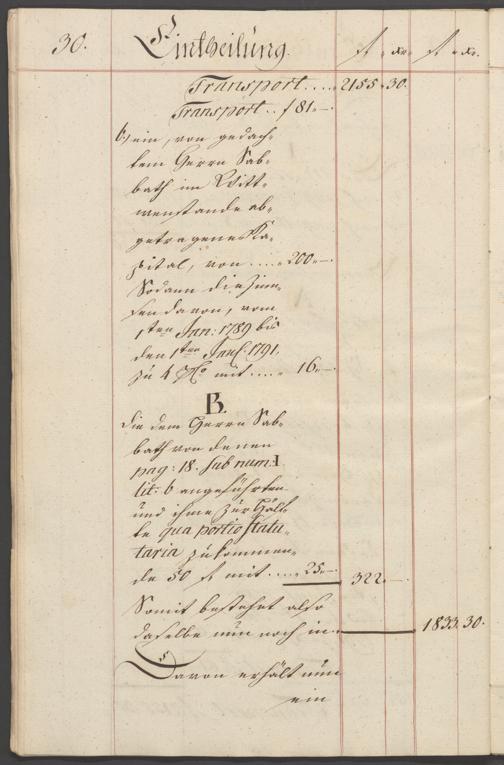 30. Eintheilung. ft. xr. ft. xr.
Transport .... 2155. 30.
Transport .. f 81.—
b.) ein, von gedach-
tem Herrn Sab-
bath im Witt-
wenstande ab-
getragenes Ka-
pital, von .... 200.—
Sodann die Zinn-
sen davon, vom
1ten Jan: 1789 bis
den 1ten Jan: 1791.
zu 4 Pto mit .... 16.—
B.
die dem Herrn Sab-
bath von denen
pag: 18. sub num: 1
lit: b angeführten
und ihme zur Hälf-
te qua portio statu-
taria zukommen-
de 50 ft mit .... 25.— 322.—
Somit bestehet also
dasselbe nun noch in 1833. 30.
Davon erhält nun
ein